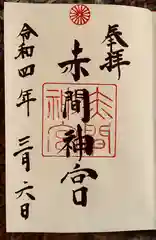 奉拝
赤間神宮
令和四年
三月六日